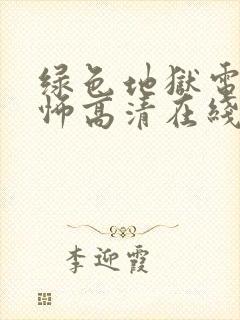 绿色地狱電
怖高清在綫
李迎霞